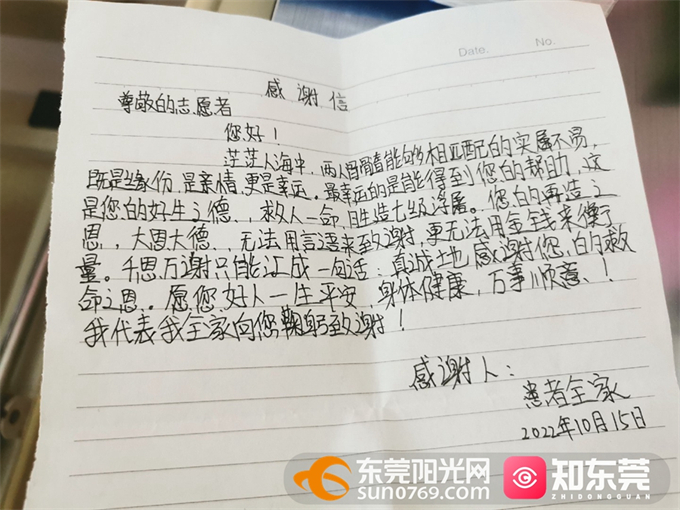 Date.  No.
感谢信
尊敬的志愿者
您好！
茫茫人海中，两人骨髓能够相匹配的实属不易，
既是缘份，是亲情，更是幸运。最幸运的是能得到您的帮助，这
是您的好生之德、救人一命，胜造七级浮屠。您的再造之
恩，大恩大德、无法用言语来致谢，更无法用金钱来衡
量。千恩万谢只能汇成一句话：真诚地感谢您，的救
命之恩。愿您好人一生平安，身体健康，万事顺意、！
我代表我全家向您鞠躬致谢！
感谢人：
患者全家
2022年10月15日
东莞阳光网
sun0769.com
知东莞
ZHIDONGGUAN